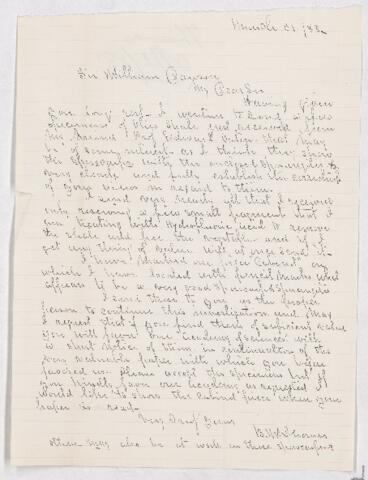 Sir William Dawson
My Dear Sir
Having given
you long rest I venture to send a few
specimens of this shale just received from
my friend Prof Edward
be of some interest as I think they show
the resemblance with the ancient Sponges to
very closely and fully establish the correctness
of your views in regard to them.
I send very nearly all that I received
only reserving a few small fragments that I
am treating with Hydrofluoric acid to remove
the shale and free the
get any thing of value will at once send it
I have one piece
which I have located with pencil marks what
appears to be a very good specimen of Sponge
I send these to you as the proper
person to continue the investigation and may
I request that if you find them of sufficient value
you will favor our Academy Sciences with
a short notice of them in continuation of the
very valuable paper with which you began
favored us. Please accept the specimens but if
you kindly favor our Academy as requested I
would like to show the cabinet piece when your
paper is read.
Very Truly Yours
B. W. Thomas
others may also be at work on these